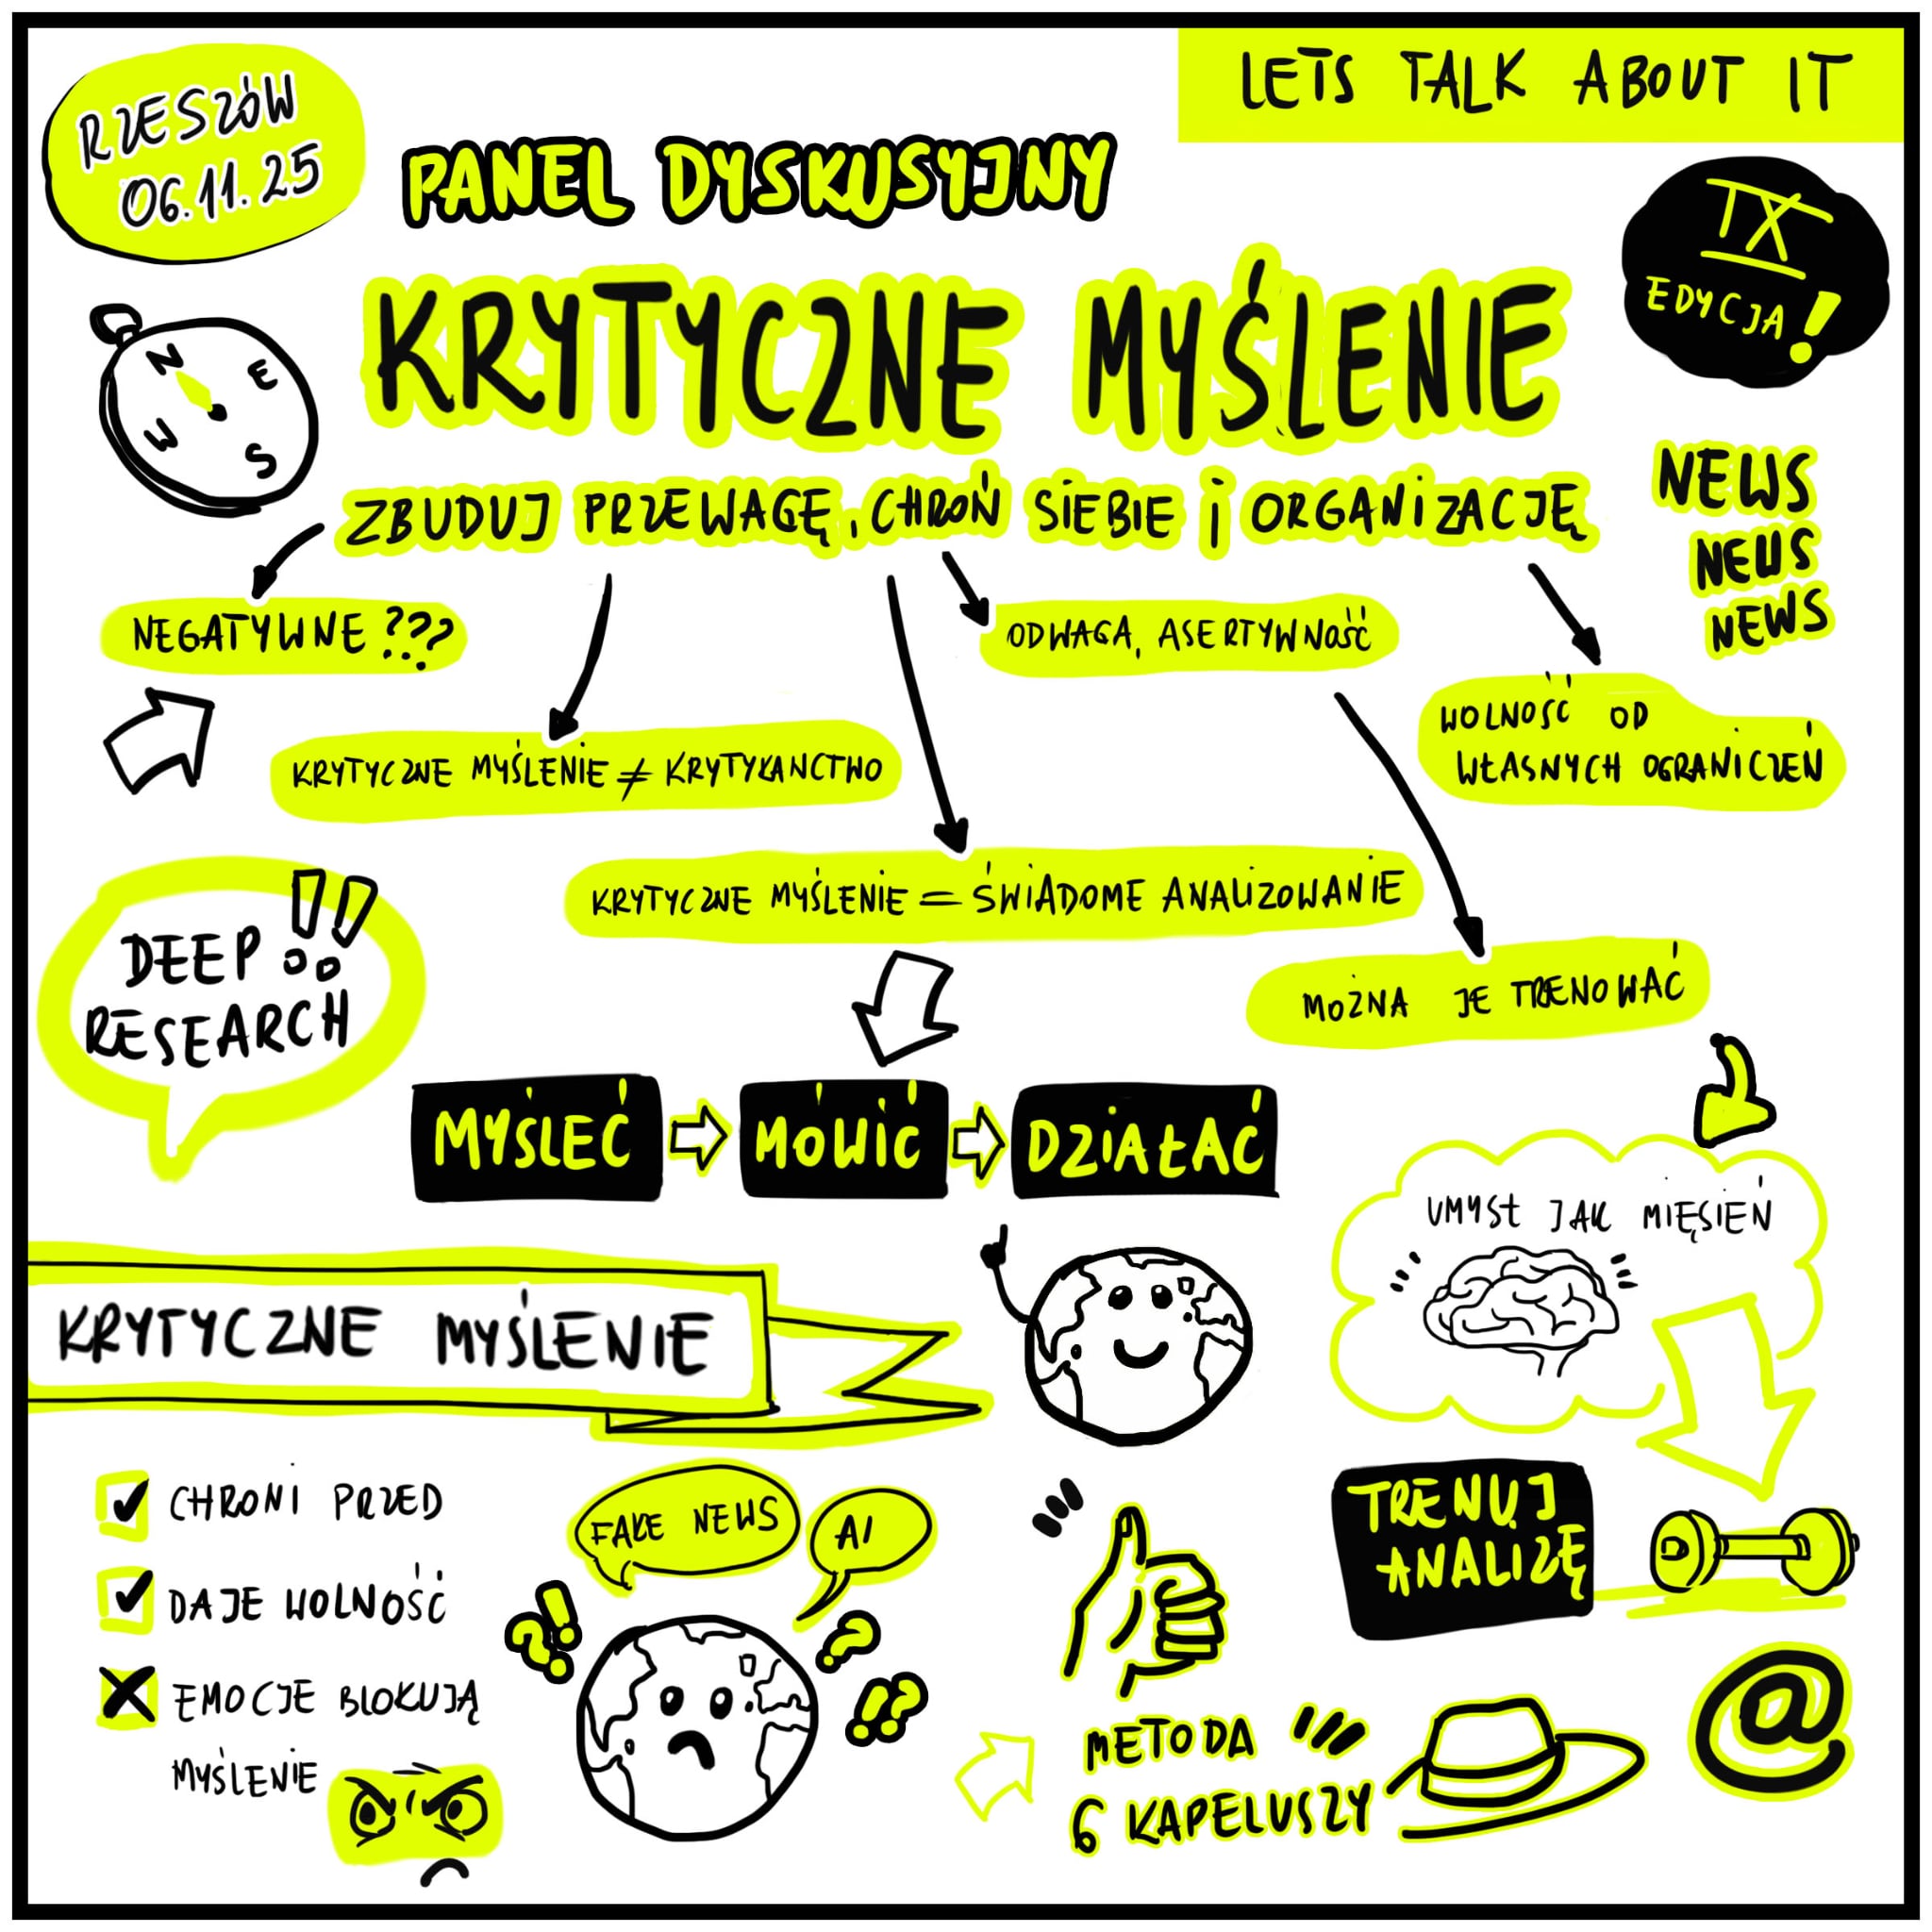 RZESZÓW
06.11.25
LETS TALK ABOUT IT
PANEL DYSKUSYJNY
IX
EDYCJA!
KRYTYCZNE MYŚLENIE
N
E
W
S
ZBUDUJ PRZEWAGĘ, CHROŃ SIEBIE i ORGANIZACJĘ
NEWS
NEWS
NEWS
NEGATYWNE ???
ODWAGA, ASERTYWNOŚĆ
WOLNOŚĆ OD
WŁASNYCH OGRANICZEŃ
KRYTYCZNE MYŚLENIE ≠ KRYTYKANCTWO
KRYTYCZNE MYŚLENIE = ŚWIADOME ANALIZOWANIE
DEEP !!
RESEARCH
MOŻNA JE TRENOWAĆ
MYŚLEĆ
MÓWIĆ
DZIAŁAĆ
UMYSŁ JAK MIĘSIEŃ
KRYTYCZNE MYŚLENIE
CHRONI PRZED
FAKE NEWS
AI
DAJE WOLNOŚĆ
EMOCJE BLOKUJĄ
MYŚLENIE
?!
?
!?
TRENUJ
ANALIZĘ
METODA
6 KAPELUSZY
@